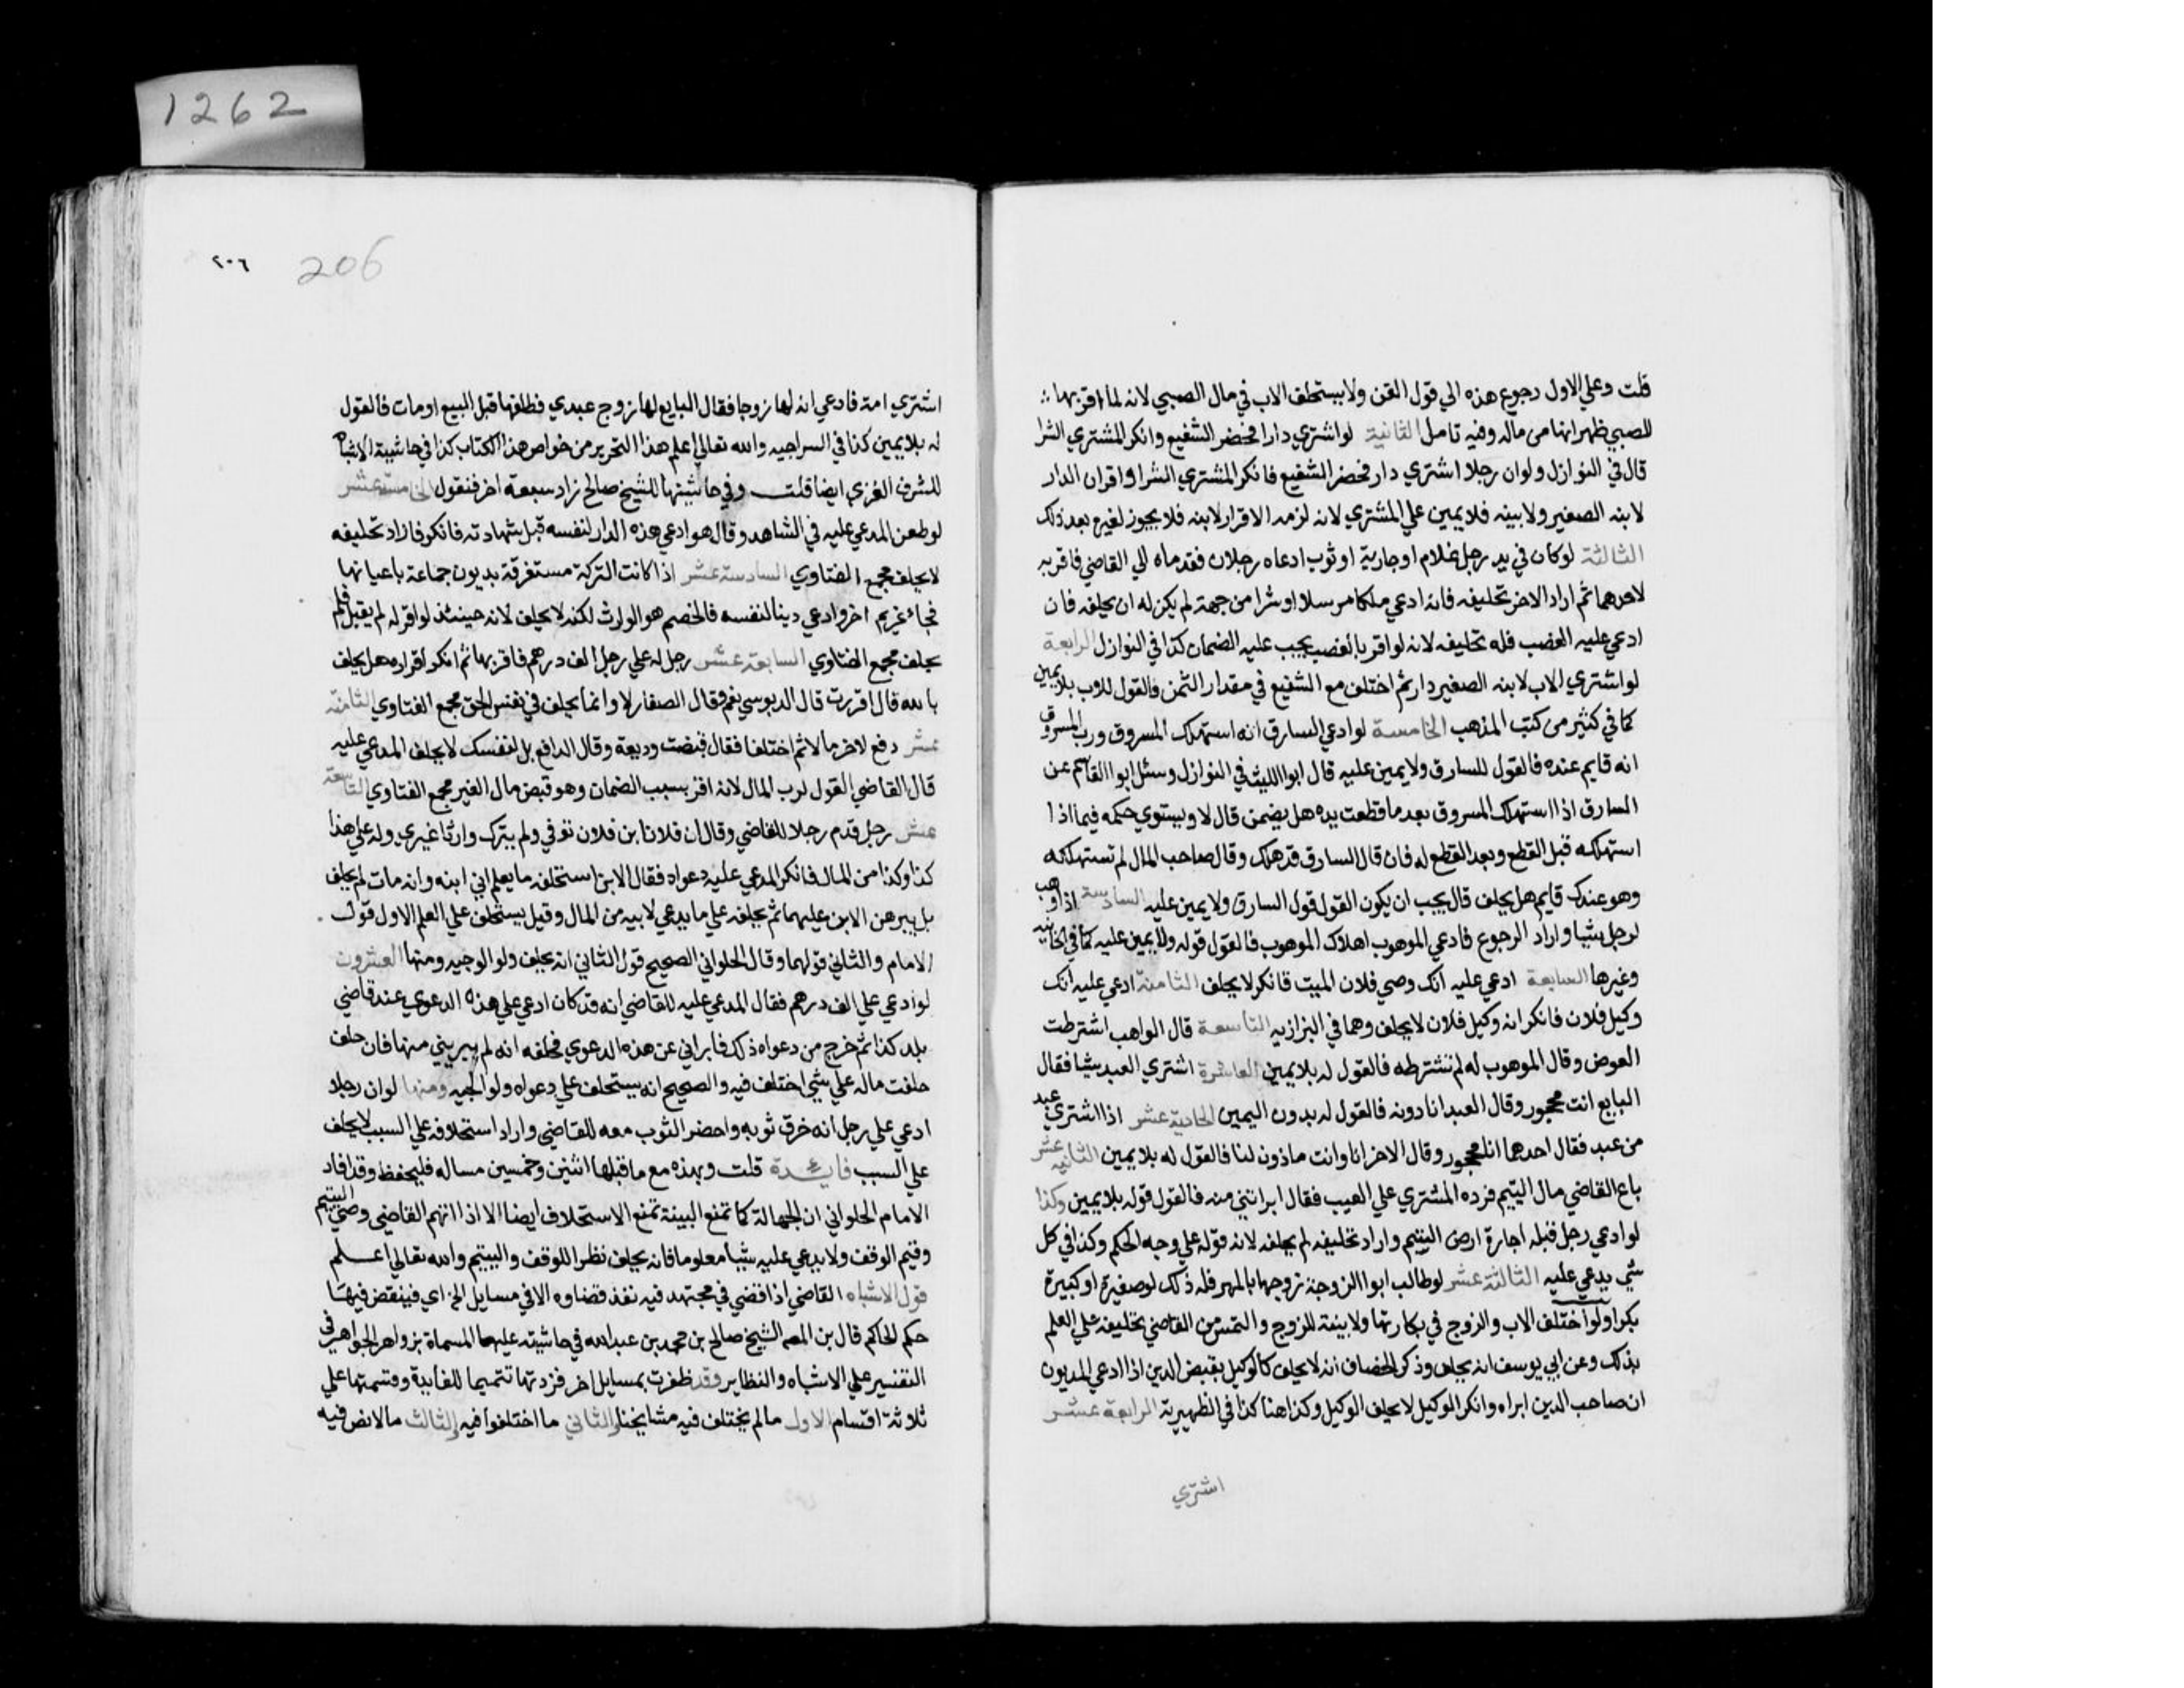 1262
قلت وعلي الاول رجوع هذه الي قول القن ولا يستحلف الاب في مال الصبي لانه لما اقر بها
للصبي ظهر انها من ماله وفيه تامل الثانية لو اشتري دارا فحضر الشفيع وانكر المشتري الشرا
قال في النوازل ولو ان رجلا اشتري دار فحضر الشفيع فانكر المشتري الشرا واقر ان الدار
لابنه الصغير ولا بينه فلا يمين علي المشتري لانه لزمه الاقرار لابنه فلا يجوز لغيره بعد ذلك
الثالثة لو كان في يد رجل غلام او جارية او ثوب ادعاه رجلان فقدماه الي القاضي فاقر به
لاحدهما ثم اراد الاخر تحليفه فانه ادعي ملكا مرسلا او شرا من جهته لم يكن له ان يحلفه فان
ادعي عليه الغصب فله تحليفه لانه لو اقر بالغصب يجب عليه الضمان كذا في النوازل الرابعة
لو اشتري الاب لابنه الصغير دارا ثم اختلف مع الشفيع في مقدار الثمن فالقول للاب بلا يمين
كما في كثير من كتب المذهب الخامسة لو ادعي السارق انه استهلك المسروق ورب المسروق
انه قايم عنده فالقول للسارق ولا يمين عليه قال ابوا الليث في النوازل وسئل ابوا القاسم عن
السارق اذا استهلك المسروق بعد ما قطعت يده هل يضمن قال لا ويستوي حكمه فيما اذا
استهلكه قبل القطع وبعد القطع له فان قال السارق قد هلك وقال صاحب المال لم تستهلكه
وهو عندك قايم هل يحلف قال يجب ان يكون القول قول السارق ولا يمين عليه السادسة اذا وهب
لرجل شيا واراد الرجوع فادعي الموهوب اهلاك الموهوب فالقول قوله ولا يمين عليه كما في الخانيه
وغيرها السابعة ادعي عليه انك وصي فلان الميت فانكر لا يحلف الثامنة ادعي عليه انك
وكيل فلان فانكر انه وكيل فلان لا يحلف وهما في البزازيه التاسعة قال الواهب اشترطت
العوض وقال الموهوب له لم تشترطه فالقول له بلا يمين العاشرة اشتري العبد شيا فقال
البايع انت محجور وقال العبد انا دونه فالقول له بدون اليمين الحادية عشر اذا اشتري عبد
من عبد فقال احدهما انا محجور وقال الاخر انا وانت ماذون لنا فالقول له بلا يمين الثانيه عشر
باع القاضي مال اليتيم فرده المشتري علي العيب فقال ابراتني منه فالقول قوله بلا يمين وكذا
لو ادعي رجل قبله اجارة ارض اليتيم واراد تحليفه لم يحلفه لانه قوله علي وجه الحكم وكذا في كل
شي يدعي عليه الثالثة عشر لو طالب ابوا الزوجة زوجها بالمهر فله ذلك لو صغيرة او كبيرة
بكرا ولو اختلف الاب والزوج في بكارتها ولا بينة للزوج والتمس من القاضي تحليفه علي العلم
بذلك وعن ابي يوسف انه يحلف وذكر الخصاف انه لا يحلف كالوكيل بقبض الدين اذا ادعي المديون
ان صاحب الدين ابراه وانكر الوكيل لا يحلف الوكيل وكذا هنا كذا في الظهيرية الرابعة عشر
اشتري
٢٠٦ 206
اشتري امة فادعي انه لها زوجا فقال البايع لها زوج عبدي فطلقها قبل البيع او مات فالقول
له بلا يمين كذا في السراجيه والله تعالي اعلم هذا التحرير من خواص هذا الكتاب كذا في حاشية الاشباه
للشرف الغزي ايضا قلت وفي حاشيتها للشيخ صالح زاد سبعة اخر فنقول الخامسة عشر
لو طعن المدعي عليه في الشاهد وقال هو ادعي هذه الدار لنفسه قبل شهادته فانكر فاراد تحليفه
لا يحلف مجمع الفتاوي السادسة عشر اذا كانت التركة مستغرقة بديون جماعة باعيانها
فجاء غريم اخر وادعي دينا لنفسه فالخصم هو الوارث لكنه لا يحلف لانه حينئذ لو اقر له لم يقبل فلم
يحلف مجمع الفتاوي السابعة عشر رجل له علي رجل الف درهم فاقر بها ثم انكر اقراره هل يحلف
بالله قال اقررت قال الدبوسي نعم وقال الصفار لا وانما يحلف في نفس الحق مجمع الفتاوي الثامنة
عشر دفع لاخر مالا ثم اختلفا فقال قبضت وديعة وقال الدافع بل لنفسك لا يحلف المدعي عليه
قال القاضي القول لرب المال لانه اقر بسبب الضمان وهو قبض مال الغير مجمع الفتاوي التاسعة
عشر رجل قدم رجلا للقاضي وقال ان فلانا بن فلان توفي ولم يترك وارثا غيري وله علي هذا
كذا وكذا من المال فانكر المدعي عليه دعواه فقال الابن استحلفه ما يعلم اني ابنه وانه مات لم يحلف
بل يبرهن الابن عليهما ثم يحلفه علي ما يدعي لابيه من المال وقيل يستحلف علي العلم الاول قول
الامام والثاني قولهما وقال الحلواني الصحيح قول الثاني انه يحلف ولو الوجيه ومنها العشرون
لو ادعي علي الف درهم فقال المدعي عليه للقاضي انه قد كان ادعي علي هذه الدعوي عند قاضي
بلد كذا ثم خرج من دعواه ذلك فابراني عن هذه الدعوي فحلفه انه لم يبريني منها فان حلف
حلفت ماله علي شي اختلف فيه والصحيح انه يستحلف علي دعواه ولو الجيه ومنها لو ان رجلا
ادعي علي رجل انه خرق ثوبه واحضر الثوب معه للقاضي واراد استحلافه علي السبب لا يحلف
علي السبب فايدة قلت وبهذه مع ما قبلها اثنين وخمسين مساله فليحفظ وقد افاد
الامام الحلواني ان الجهالة كما تمنع البينة تمنع الاستحلاف ايضا الا اذا اتهم القاضي وصي اليتيم
وقيم الوقف ولا يدعي عليه شيا معلوما فانه يحلف نظرا للوقف واليتيم والله تعالي اعلم
قول الاشباه القاضي اذا قضي في مجتهد فيه نفذ قضاوه الا في مسايل الخ اي فينقض فيها
حكم الحاكم قال بن المص الشيخ صالح بن محمد بن عبد الله في حاشيته عليها المسماة بزواهر الجواهر في
التفسير علي الاشباه والنظاير وقد ظفرت بمسايل اخر فزدتها تتميما للفايدة وقسمتها علي
ثلاثة اقسام الاول ما لم يختلف فيه مشايخنا والثاني ما اختلفوا فيه والثالث ما لا نص فيه